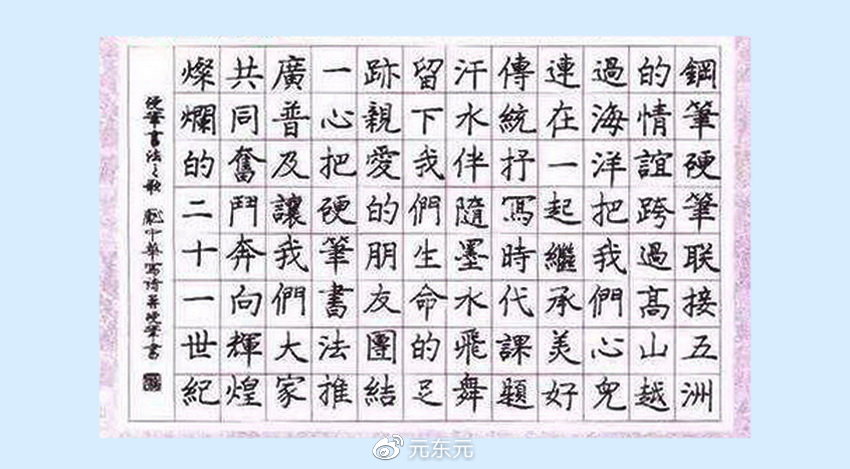 鋼筆硬筆联接五洲
的情誼跨過髙山越
過海洋把我們心兒
連在一起繼承美好
傳統抒寫時代課題
汗水伴隨墨水飛舞
留下我們生命的足
跡親愛的朋友團結
一心把硬筆書法推
廣普及讓我們大家
共同奮鬥奔向輝煌
燦爛的二十一世紀
硬筆書法之歌 龐中華寫詩并硬筆書
元东元